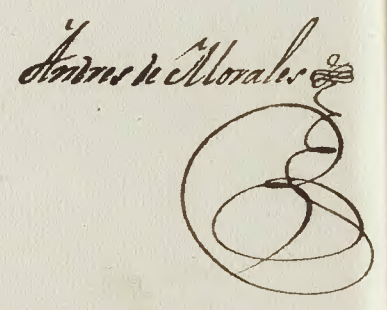 Andres de Morales